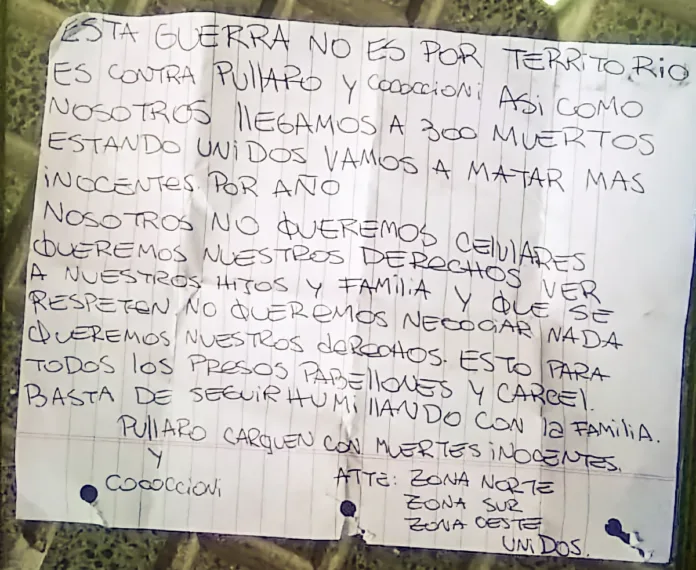 ESTA GUERRA NO ES POR TERRITORIO
ES CONTRA PULLARO Y COCOCCIONI ASI COMO
NOSOTROS LLEGAMOS A 300 MUERTOS
ESTANDO UNIDOS VAMOS A MATAR MAS
INOCENTES. POR AÑO
NOSOTROS NO QUEREMOS CELULARES
QUEREMOS NUESTROS DERECHOS VER
A NUESTROS HIJOS Y FAMILIA Y QUE SE
RESPETEN NO QUEREMOS NEGOCIAR NADA
QUEREMOS NUESTROS DERECHOS. ESTO PARA
TODOS LOS PRESOS PABELLONES Y CARCEL.
BASTA DE SEGUIR HUMILLANDO CON LA FAMILIA.
PULLARO CARGUEN CON MUERTES INOCENTES.
Y
COCOCCIONI
ATTE: ZONA NORTE
ZONA SUR
ZONA OESTE
UNIDOS.